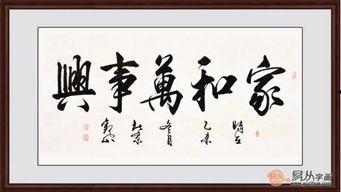 家和萬事興
時在
乙未
冬月
易从字画